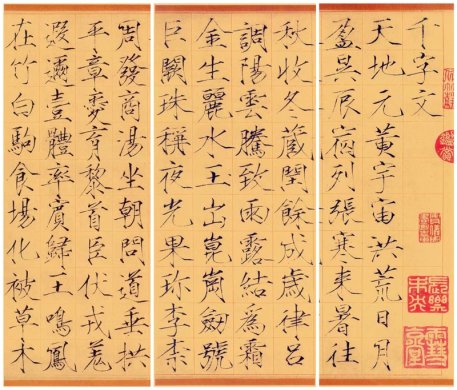 千字文
天地元黃宇宙洪荒日月
盈昃辰宿列張寒来暑往
秋收冬蔵閏餘成歲律呂
調陽雲騰致雨露結爲霜
金生麗水玉出崑崗劒號
巨闕珠稱夜光果珎李柰
周發商湯坐朝問道垂拱
平章愛育黎首臣伏戎羌
遐邇壹體率賓歸王鳴鳳
在竹白駒食場化被草木